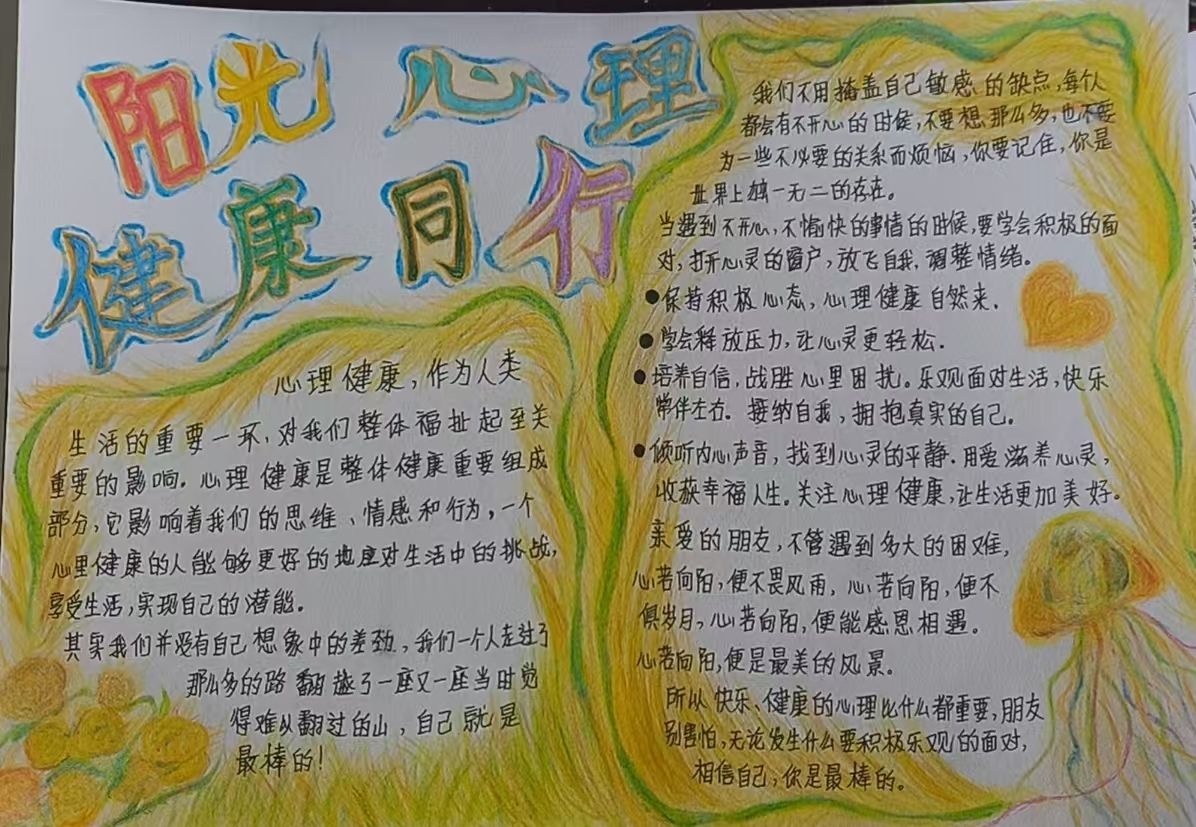 阳光 心理
健康 同行
心理健康，作为人类
生活的重要一环，对我们整体福扯起至关
重要的影响。心理健康是整体健康重要组成
部分，它影响着我们的思维、情感和行为，一个
心里健康的人能够更好的地应对生活中的挑战，
享受生活，实现自己的潜能。
其实我们并没有自己想象中的差劲，我们一个人走过了
那么多的路 翻越了一座又一座当时觉
得难以翻过的山，自己就是
最棒的！
我们不用掩盖自己敏感的缺点，每个人
都会有不开心的时候，不要想那么多，也不要
为一些不必要的关系而烦恼，你要记住，你是
世界上独一无二的存在。
当遇到不开心，不愉快的事情的时候，要学会积极的面
对，打开心灵的窗户，放飞自我，调整情绪。
●保持积极心态，心理健康自然来。
●学会释放压力，让心灵更轻松。
●培养自信，战胜心里困扰。乐观面对生活，快乐
常伴左右。接纳自我，拥抱真实的自己。
●倾听内心声音，找到心灵的平静。用爱滋养心灵，
收获幸福人生。关注心理健康，让生活更加美好。
亲爱的朋友，不管遇到多大的困难，
心若向阳，便不畏风雨，心若向阳，便不
惧岁月，心若向阳，便能感恩相遇。
心若向阳，便是最美的风景。
所以快乐、健康的心理比什么都重要，朋友
别害怕，无论发生什么要积极乐观的面对，
相信自己，你是最棒的。